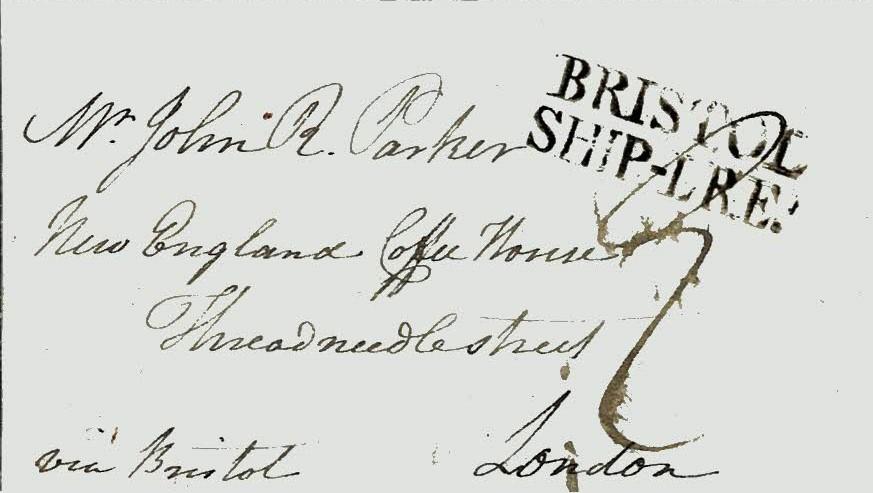 BRISTOL
SHIP-LRE.
Mr. John R. Parker
New England Coffee House
Threadneedle street
via Bristol London